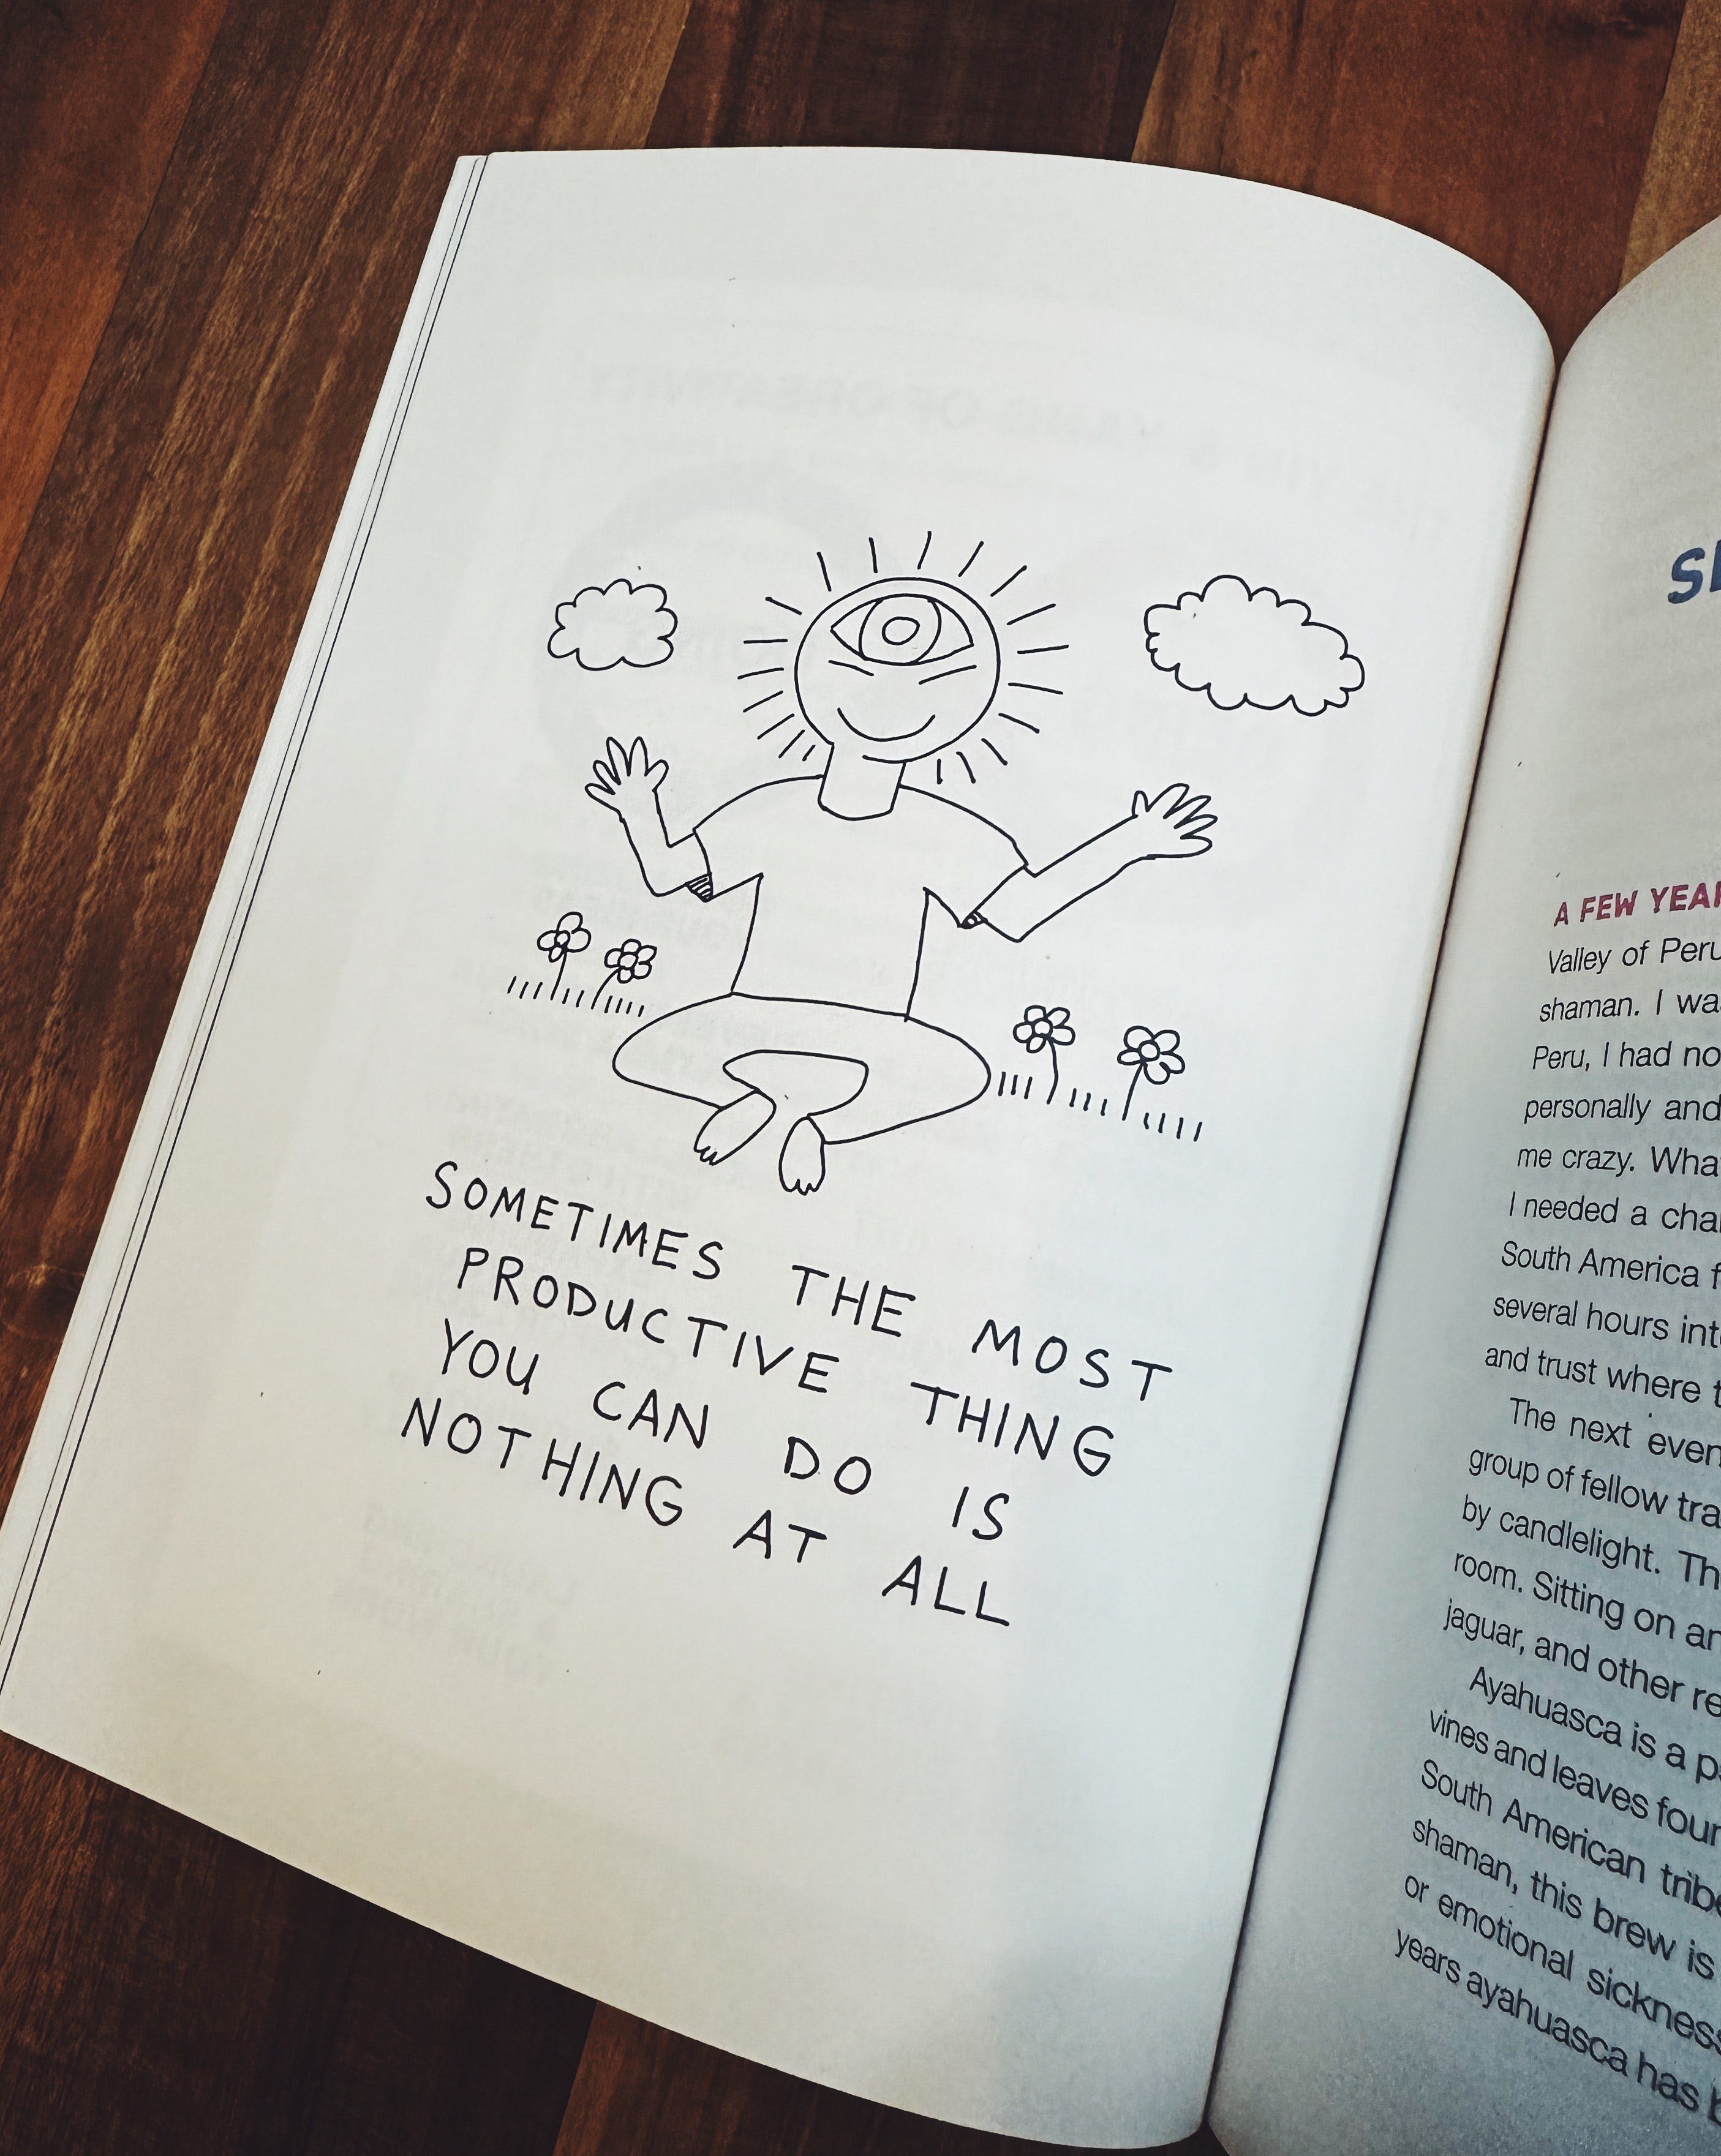 SOMETIMES THE MOST
PRODUCTIVE THING
YOU CAN DO IS
NOTHING AT ALL
A FEW
Valley of Peru
shaman. I
Peru, I had
personally and
me crazy.
I needed a
South America
several hours
and trust where
The next
group of fellow
by candlelight.
room. Sitting on
jaguar, and other
Ayahuasca is a
vines and leaves
South American
shaman, this brew is
or emotional
years ayahuasca has